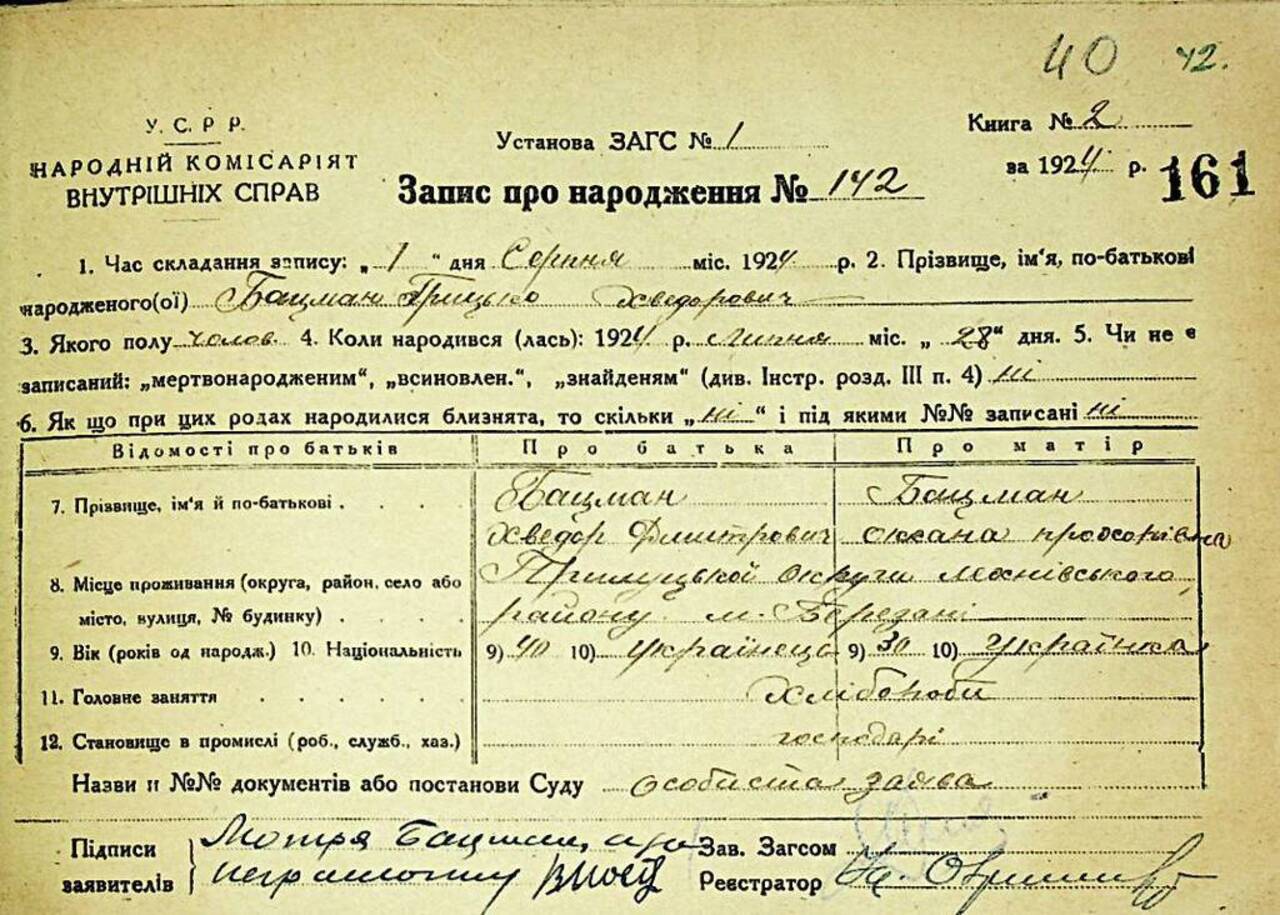 40 42.
У. С. Р Р.
НАРОДНІЙ КОМІСАРІЯТ
ВНУТРІШНІХ СПРАВ
Установа ЗАГС № 1
Книга № 2
за 1924 р. 161
Запис про народження № 142
1. Час складання запису: „1" дня Серпня міс. 1924 р. 2. Прізвище, ім'я, по-батькові
народженого(ої) Бацман Грицько Хведорович
3. Якого полу чолов. 4. Коли народився (лась): 1924 р. Липня міс. „28" дня. 5. Чи не є
записаний: „мертвонародженим", „всиновлен.", „знайденям" (див. Інстр. розд. III п. 4) ні
6. Як що при цих родах народилися близнята, то скільки „ні" і під якими №№ записані ні
Відомості про батьків Про батька Про матір
7. Прізвище, ім'я й по-батькові . . . . Бацман Бацман
Хведор Дмитрович оксана
8. Місце проживання (округа, район, село або Прилуцької округи
місто, вулиця, № будинку) . . . . району м. Березані
9. Вік (років од народж.) 10. Національність 9) 40 10) Українець 9) 30 10) Українка
11. Головне заняття . . . . . . Хлібороби
12. Становище в промислі (роб., служб., хаз.) господарі
Назви й №№ документів або постанови Суду особиста заява
Підписи Мотря Бацман, а за Зав. Загсом
заявителів неграмотну Реєстратор